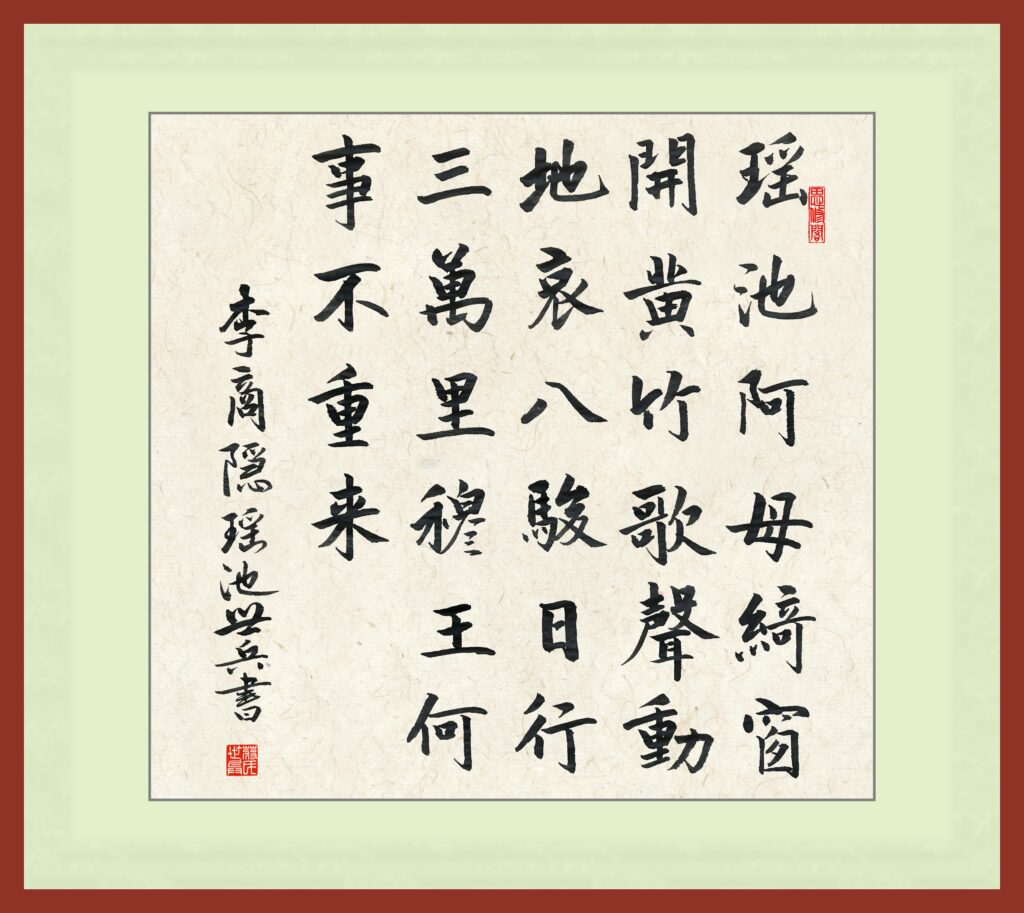 瑶池阿母綺窗
開黄竹歌聲動
地哀八駿日行
三萬里穆王何
事不重来
李商隠瑶池世兵書